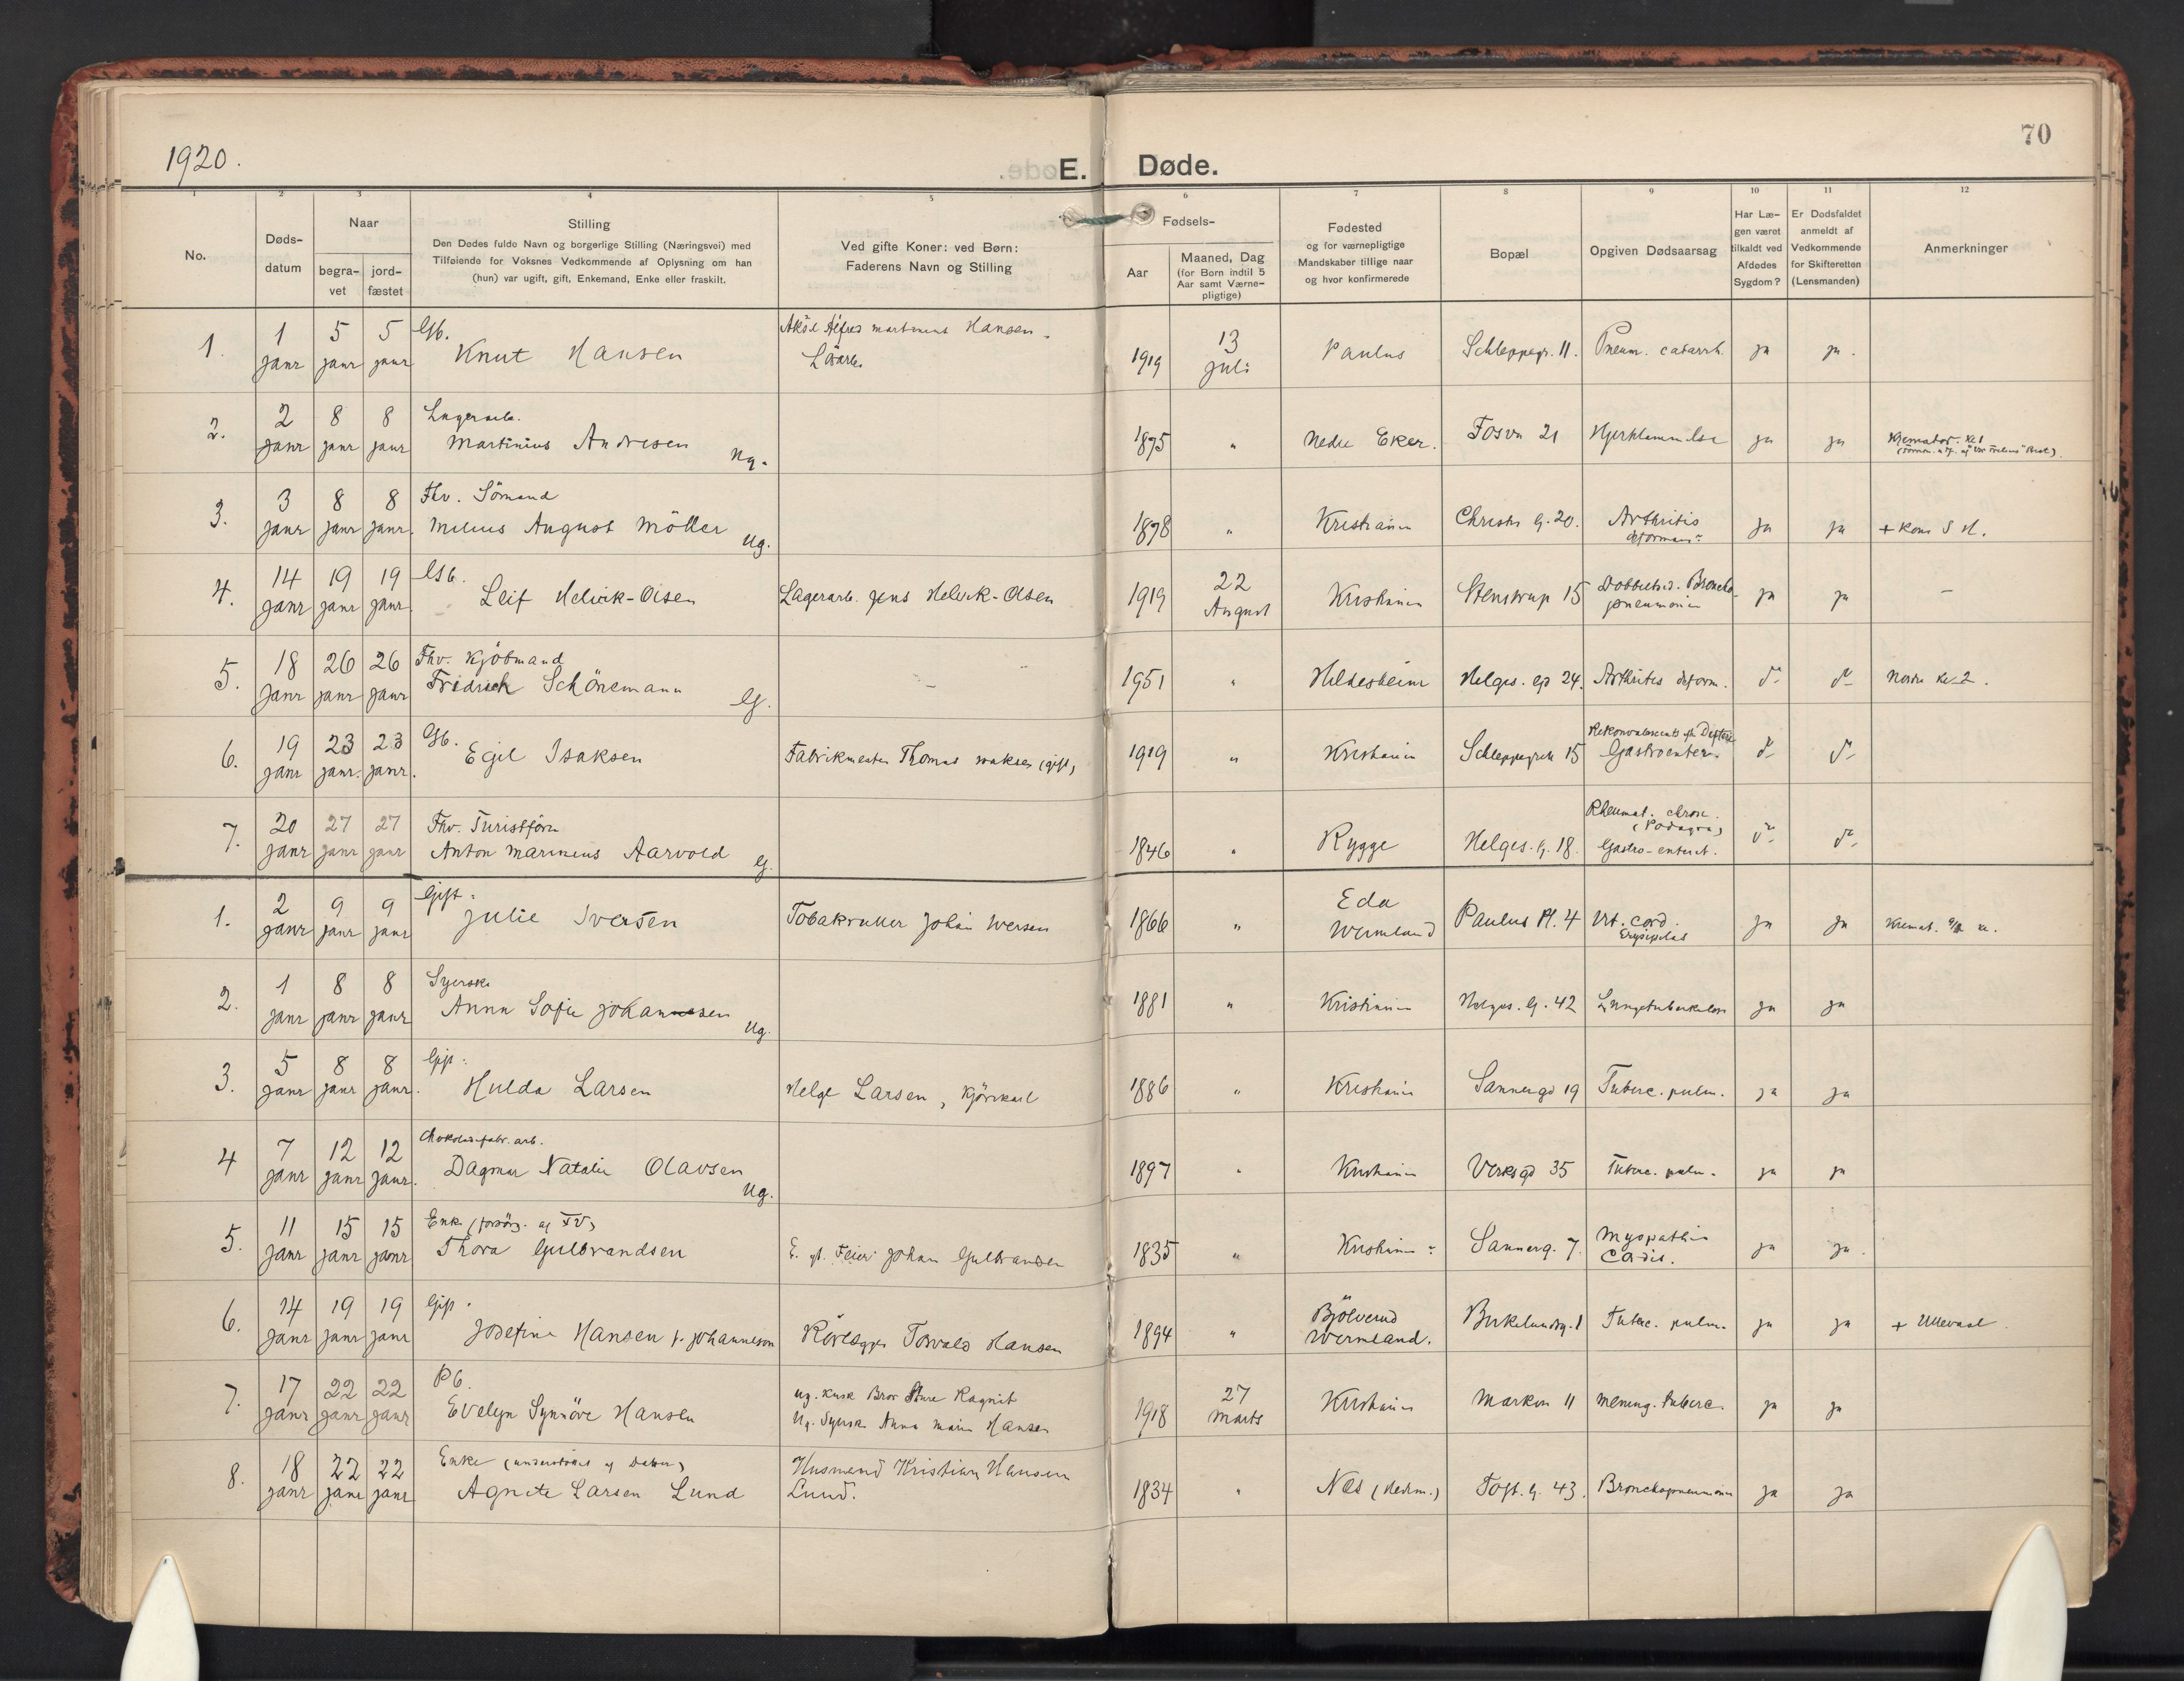 1920.
E. Døde.
70
1 2 3 4 5 6 7 8 9 10 11 12
No.
Døds-
datum
Naar
begra-
vet
jord-
fæstet
Stilling
Den Dødes fulde Navn og borgerlige Stilling (Næringsvei) med
Tilføiende for Voksnes Vedkommende af Oplysning om han
(hun) var ugift, gift, Enkemand, Enke eller fraskilt.
Ved gifte Koner: ved Børn:
Faderens Navn og Stilling
Fødsels-
Aar
Maaned, Dag
(for Børn indtil 5
Aar samt Værne-
pligtige)
Fødested
og for værnepligtige
Mandskaber tillige naar
og hvor konfirmerede
Bopæl
Opgiven Dødsaarsag
Har Læ-
gen været
tilkaldt ved
Afdødes
Sygdom?
Er Dødsfaldet
anmeldt af
Vedkommende
for Skifteretten
(Lensmanden)
Anmerkninger
1. 1 janr 5 janr 5 janr Gb.
Knut Hansen
Aksel Alfred Martinius Hansen
Løsarb.
1919 13 juli Paulus Schleppegr. 11. Pneum. catarrh. ja ja.
2. 2 janr 8 janr 8 janr Lagerarb.
Martinius Andresen Ug.
1875 " Nedre Eker. Fosvn 21 Hjerteklammelse ja ja Kremator. Kl 1
3. 3 janr 8 janr 8 janr. Fhv. Sömand
Milius August Möller Ug.
1878 " Kristiania Christies G. 20. Arthritis
deformans ja ja + Kom S H.
4. 14 janr 19 janr 19 janr Gb.
Leif Helvik-Olsen
Lagerarb. Jens Helvik-Olsen
1919 22 August Kristiania Stenstrup 15 Dobbeltsid. Broncho-
pneumonia ja ja –
5. 18 janr 26 janr 26 janr Fhv. Kjöbmand
Fridrich Schönemann G.
–
1951 " Hildesheim Helges. gd 24. Arthrites deform. do do Nordre kl 2.
6. 19 janr 23 janr. 23 janr. Gb.
Egil Isaksen
Fabrikmester Thomas Isaksen (gift)
1919 " Kristiania Schleppegrels 15 Rekonvalescents eft. Difteri
Gastroenter. do do
7. 20 janr 27 janr 27 janr Fhv. Turistförer
Anton Marinius Aarvold G.
1846 " Rygge Helges. G. 18. Rheumat. chron.
(Podagra)
Gastro-enterit. do do
1. 2 janr 9 janr 9 janr Gift.
Julie Iversen
Tobakruller Johan Iversen
1866 " Eda
Wermland Paulus Pl. 4 Vit. cord.
Erysipelas ja ja Kremat.
2. 1 janr 8 janr 8 janr Syerske
Anna Sofie Johannesen Ug.
1881 " Kristiania Helges. G. 42 Lungetuberkulose ja ja
3. 5 janr 8 janr 8 janr. Gift.
Hulda Larsen
Helge Larsen, Kjörekarl
1886 " Kristiania Sannergd 19 Tuberc. pulm. ja ja
4 7 janr 12 janr 12 janr. Chokoladefabr. arb.
Dagmar Natalie Olavsen Ug.
1897 " Kristiania Verksgd 35 Tuberc. pulm. ja ja
5. 11 janr 15 janr 15 janr Enke (forsörg. af FV)
Thora Gulbrandsen
E. eft. Feier Johan Gulbrandsen
1835 " Kristiania Sannerg. 7. Myopathia
Cordis. ja ja.
6. 14 janr 19 janr 19 janr Gift.
Josefine Hansen f. Johanneson
Rörlegger Torvald Hansen
1894 " Bjölverud
Wermland. Birkelundsg. 1 Tuberc. pulm. ja ja + Ullevaal.
7. 17 janr 22 janr 22 janr Pb.
Evelyn Synnöve Hansen
Ug. Kusk Bror Sture Ragnit
Ug. Syersk. Anna Marie Hansen
1918 27 Marts Kristiania Markvn 11 Mening. tuberc. ja ja
8. 18 janr 22 janr 22 janr Enke (understöttet af Døtre)
Agnete Larsen Lund
Husmand Kristian Hansen
Lund.
1834 " Nes (Hedm.) Toft. G. 43. Bronchopneumonia ja ja